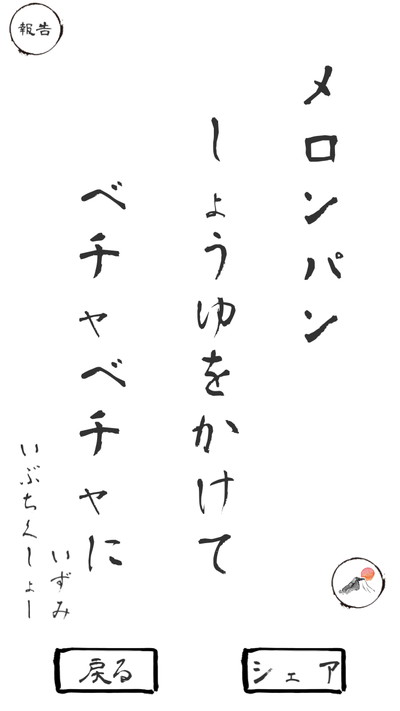 報告
メロンパン
しょうゆをかけて
ベチャベチャに
いずみ
いぶちくしょー
戻る
シェア